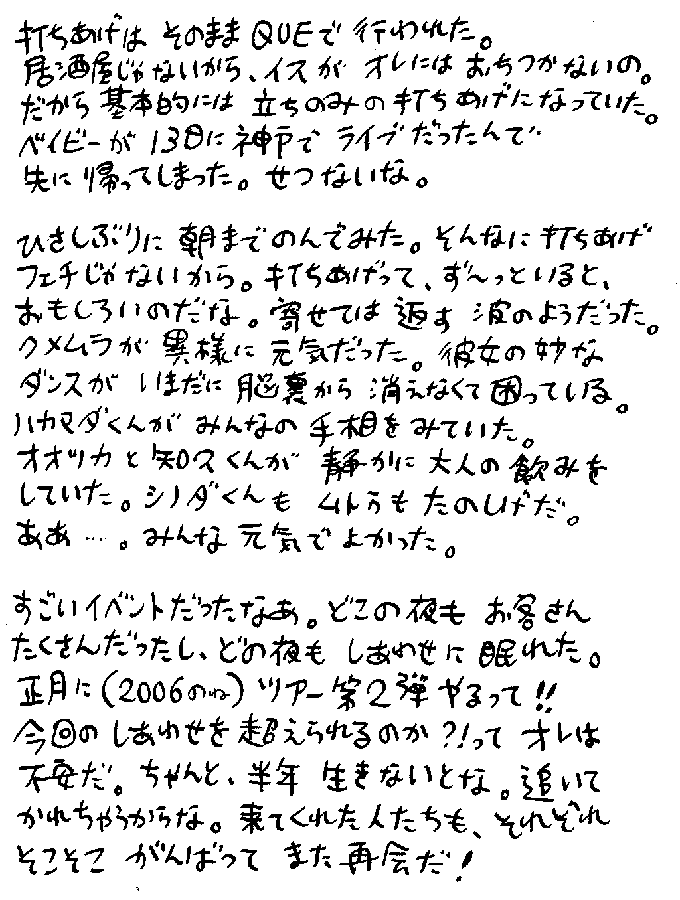 打ちあげは そのまま QUEで 行われた。
居酒屋じゃないから、イスが オレには おちつかないの。
だから 基本的には 立ちのみの 打ちあげになっていた。
ベイビーが 13日に 神戸で ライブだったんで
先に 帰ってしまった。せつないな。

ひさしぶりに 朝まで のんでみた。そんなに 打ちあげ
フェチじゃないから。打ちあげって、ず〜っといると、
おもしろいのだな。寄せては 返す 波のようだった。
クメムラが 異様に 元気だった。彼女の 妙な
ダンスが いまだに 脳裏から 消えなくて 困っている。
ハカマダくんが みんなの 手相を みていた。
オオツカと 知久くんが 静かに 大人の 飲みを
していた。シノダくんも ムトうも たのしげだ。
ああ…。みんな 元気で よかった。

すごい イベントだったなあ。どこの夜も お客さん
たくさんだったし、どの夜も しあわせに 眠れた。
正月に(2006のね)ツアー第2弾 やるって!!
今回の しあわせを 超えられるのか?!って オレは
不安だ。ちゃんと、半年 生きないとな。追いて
かれちゃうからな。来てくれた人たちも、それぞれ
そこそこ がんばって また 再会だ!